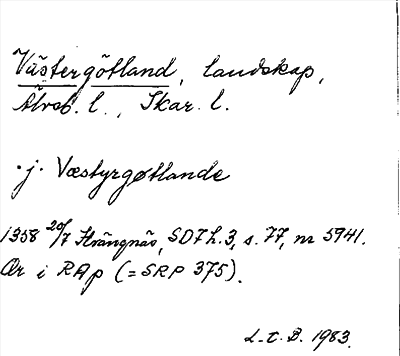 Västergötland, landskap,
Älvsb. l., Skar. l.
.j. Væstyrgøtlande
1358 20/7 Strängnäs, SD7 h. 3, s. 77, nr 5941.
Or i RAp (= SRP 375).
L.t.B. 1983.